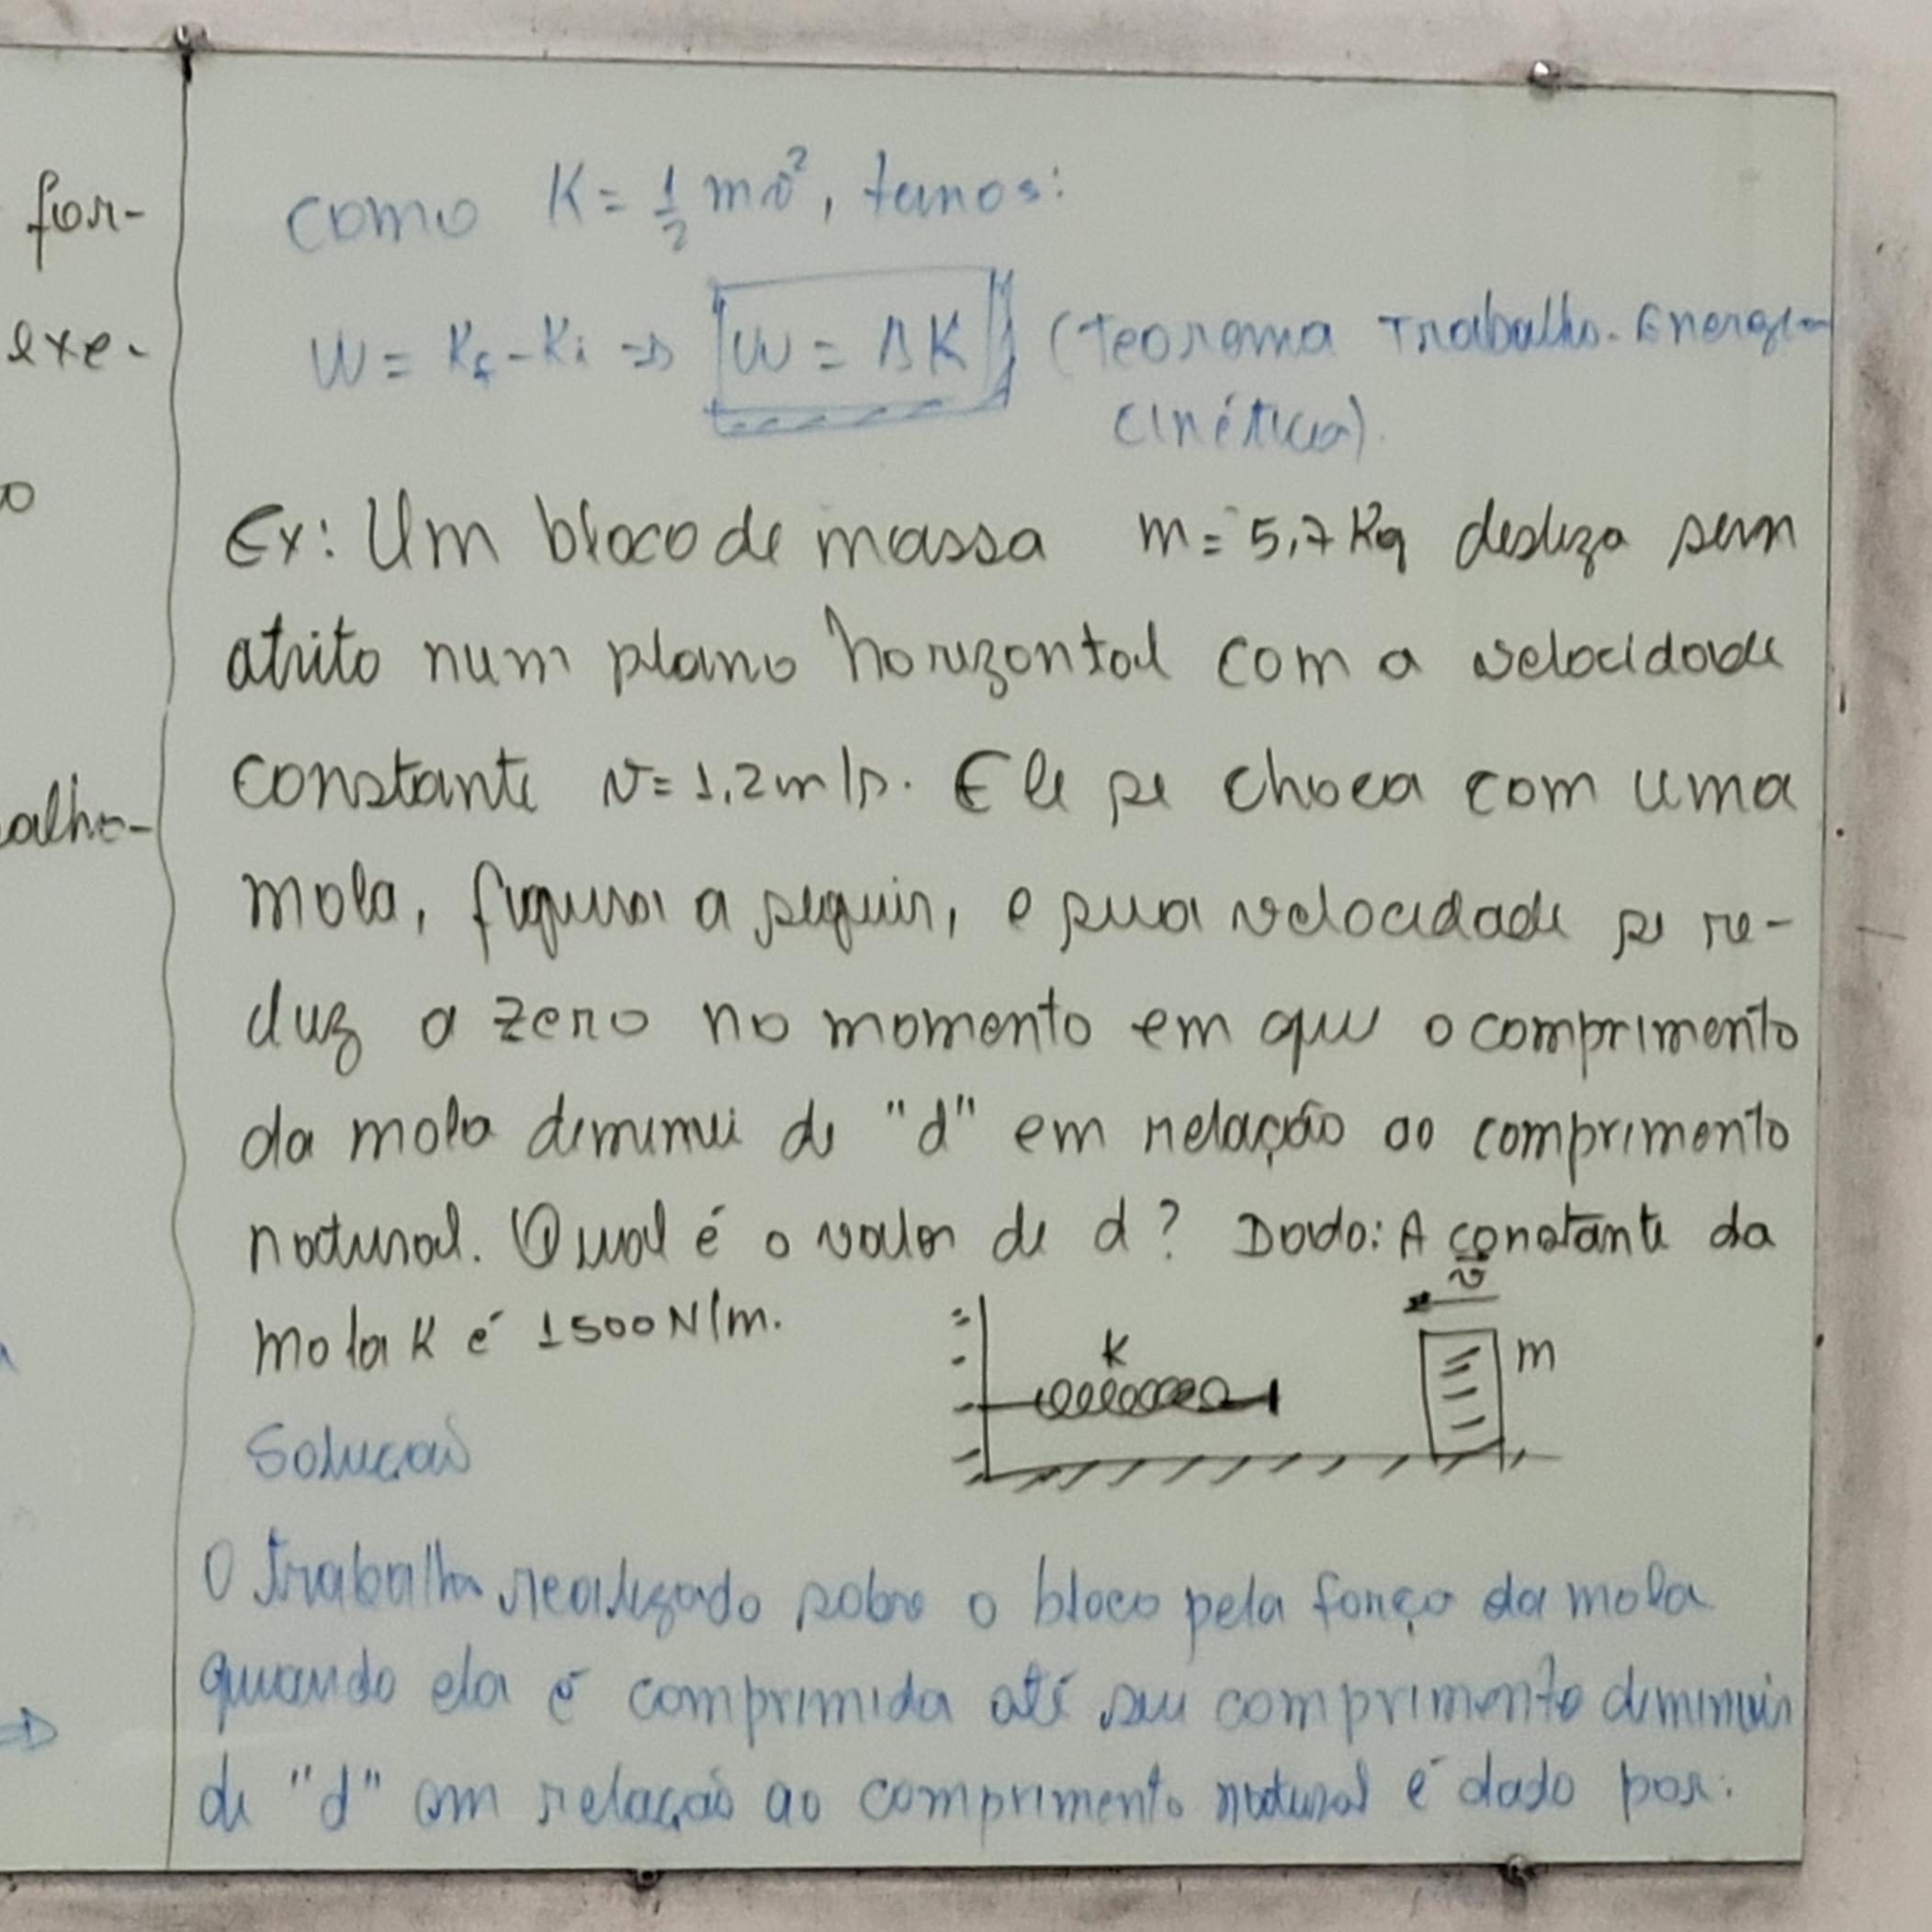 for-
exe-
o
alho-
⇒
como K = 1/2 mv², temos:
W = Kf - Ki ⇒ W = ΔK (Teorema Trabalho-Energia
Cinética).
Ex: Um bloco de massa m = 5,7 Kg desliza sem
atrito num plano horizontal com a velocidade
constante v = 1,2 m/s. Ele se choca com uma
mola, figura a seguir, e sua velocidade se re-
duz a zero no momento em que o comprimento
da mola diminui de "d" em relação ao comprimento
natural. Qual é o valor de d? Dado: A constante da
mola K é 1500 N/m.
v
K
m
Solução
O trabalho realizado sobre o bloco pela força da mola
quando ela é comprimida até seu comprimento diminuir
de "d" em relação ao comprimento natural é dado por: